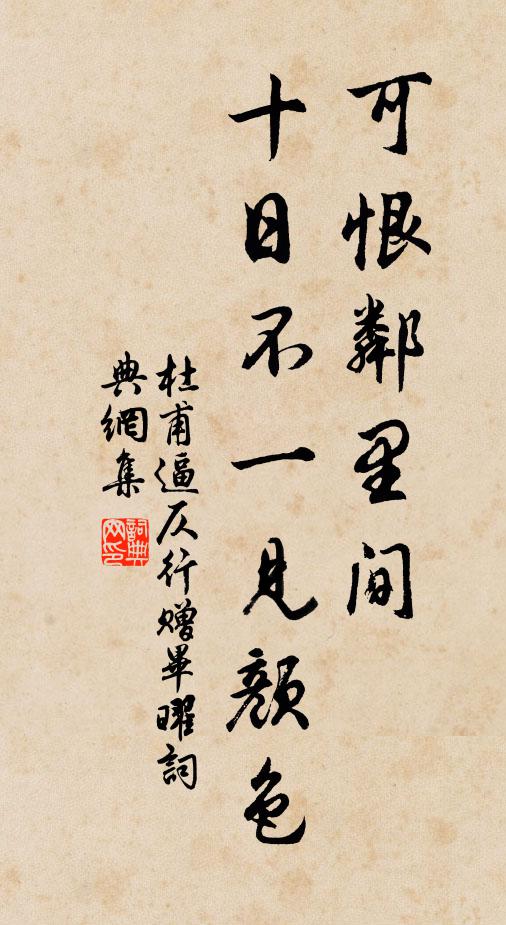 可恨鄰里間
十日不一見顏色
杜甫逼仄行贈畢曜詞
典網集
詞典
网印